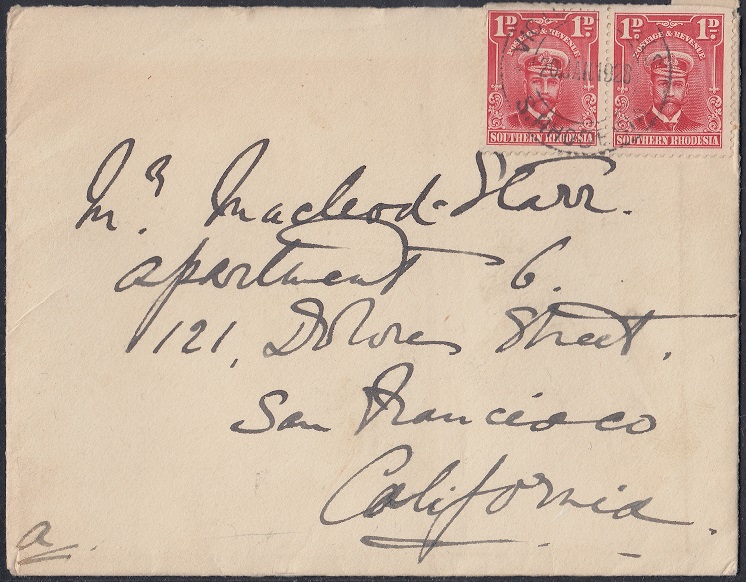 1D. 1D. 1D. 1D.
POSTAGE & REVENUE POSTAGE & REVENUE
20 JAN 1926
S. RHODESIA
SOUTHERN RHODESIA SOUTHERN RHODESIA
Mrs. Macleod-Starr.
apartment 6.
121, Dolores Street.
San Francisco
California.
a